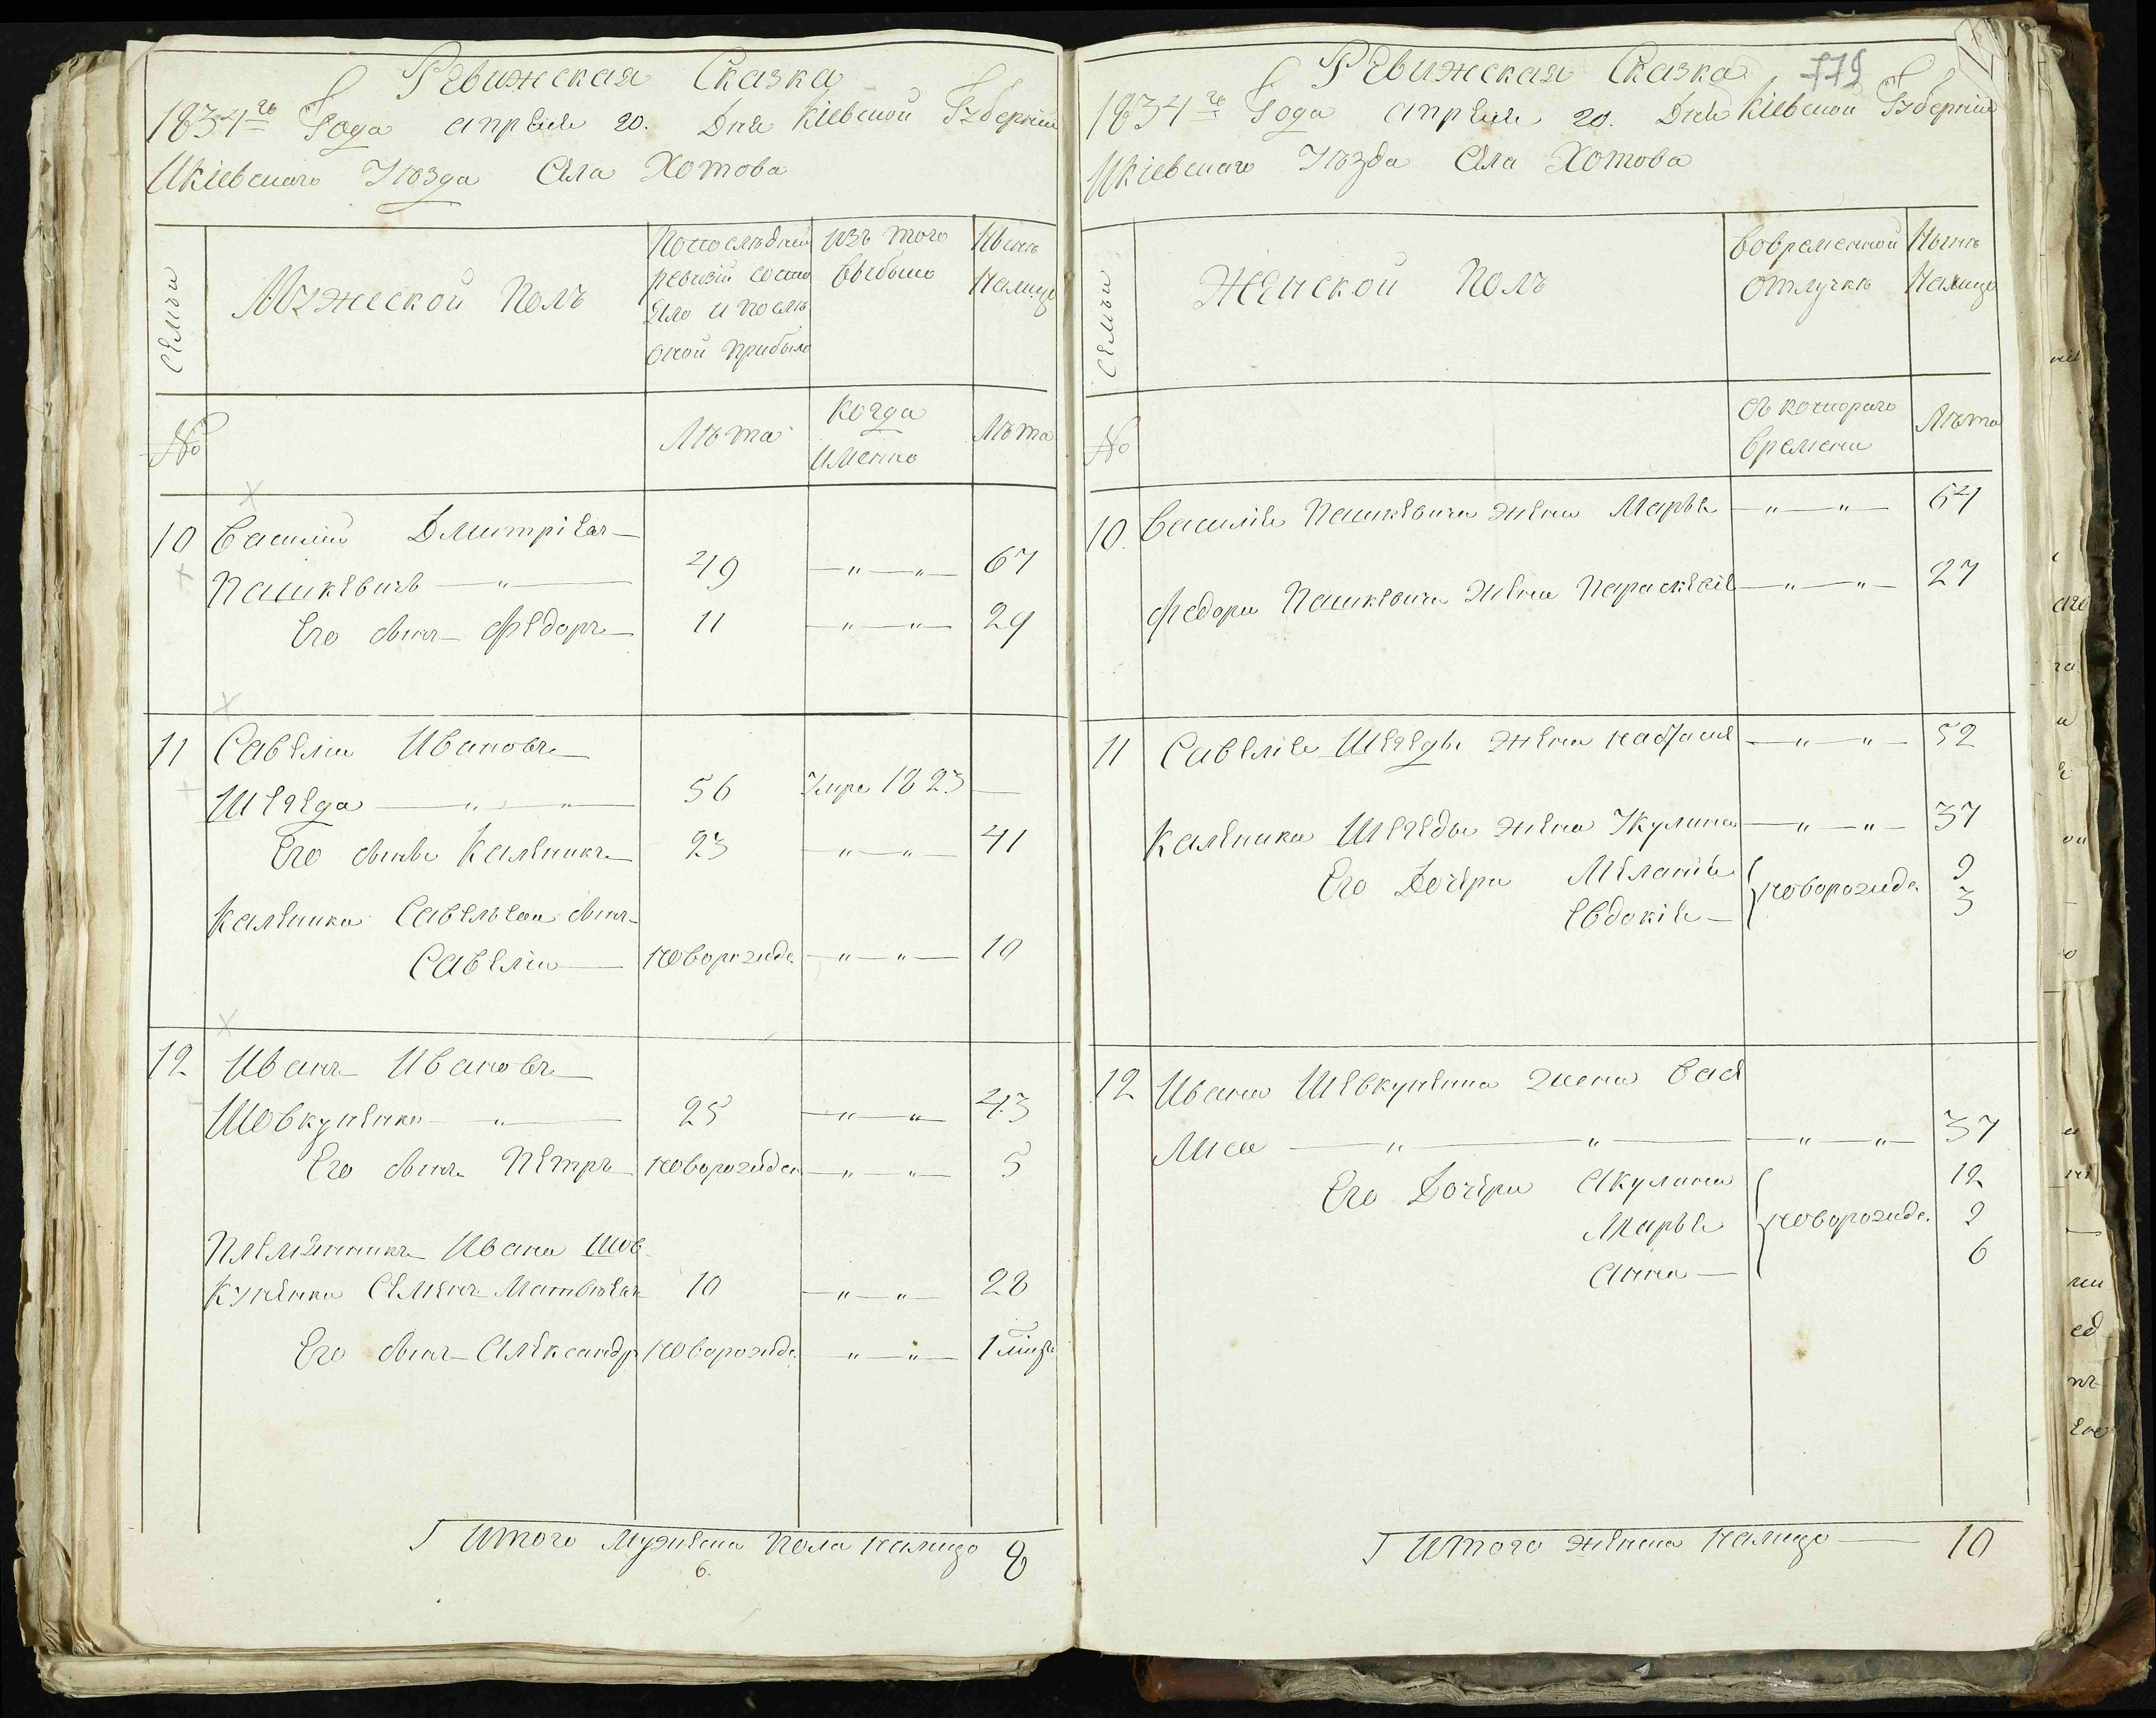 Ревижская Сказка
1834го Года апреля 20. Дня Кіевской Губерніи
Икіевскаго Уѣзда Села Хотова
Семьи
Мужеской Полъ
Попослѣдней
ревизіи состо
яло и послѣ
оной прибыло
изъ того
выбыло
Нынѣ
Налицо
№
Лѣта
Когда
именно
Лѣта
10 Василій Дмитріевъ
Пашкевичъ — " — 49 — " — " — 67
Его сынъ Федоръ 11 — " — " — 29
11 Савелій Ивановъ
Шегеда — " — " — 56 Умре 1823 —
Его сынъ Каленикъ 23 — " — " — 41
Каленика Савельева сынъ
Савелій — новорожде. — " — " — 10
12 Иванъ Ивановъ
Шовкуненко — " — 25 — " — " — 43
Его сынъ Петръ новорожден — " — " — 5
Племянникъ Ивана Шов
куненка Семенъ Матвѣевъ 10 — " — " — 28
Его сынъ Александръ новорожде. — " — " — 1 мѣсяцъ
Итого мужеска пола налицо 8
6.
Ревижская Сказка 179
1834го Года апреля 20. Дня Кіевской Губерніи
Икіевскаго Уѣзда Села Хотова
Семьи
Женской Полъ
Вовременной
отлучкѣ
Нынѣ
Налицо
№
съ котораго
времени
Лѣта
10. Василія Пашкевича жена Марья — " — " — 64
Федора Пашкевича жена Параскевія — " — " — 27
11 Савелія Шегеды жена — " — " — 52
Каленика Шегеды жена Укулина — " — " — 37
Его Дочери Меланія новорожде. 9
Евдокія — 3
12 Ивана Шевкуненка жена Васи
лиса — " — " — " — " — 37
Его Дочери Акулина 12
Марья новорожде. 9
Анна — 6
Итого женска налицо — 10